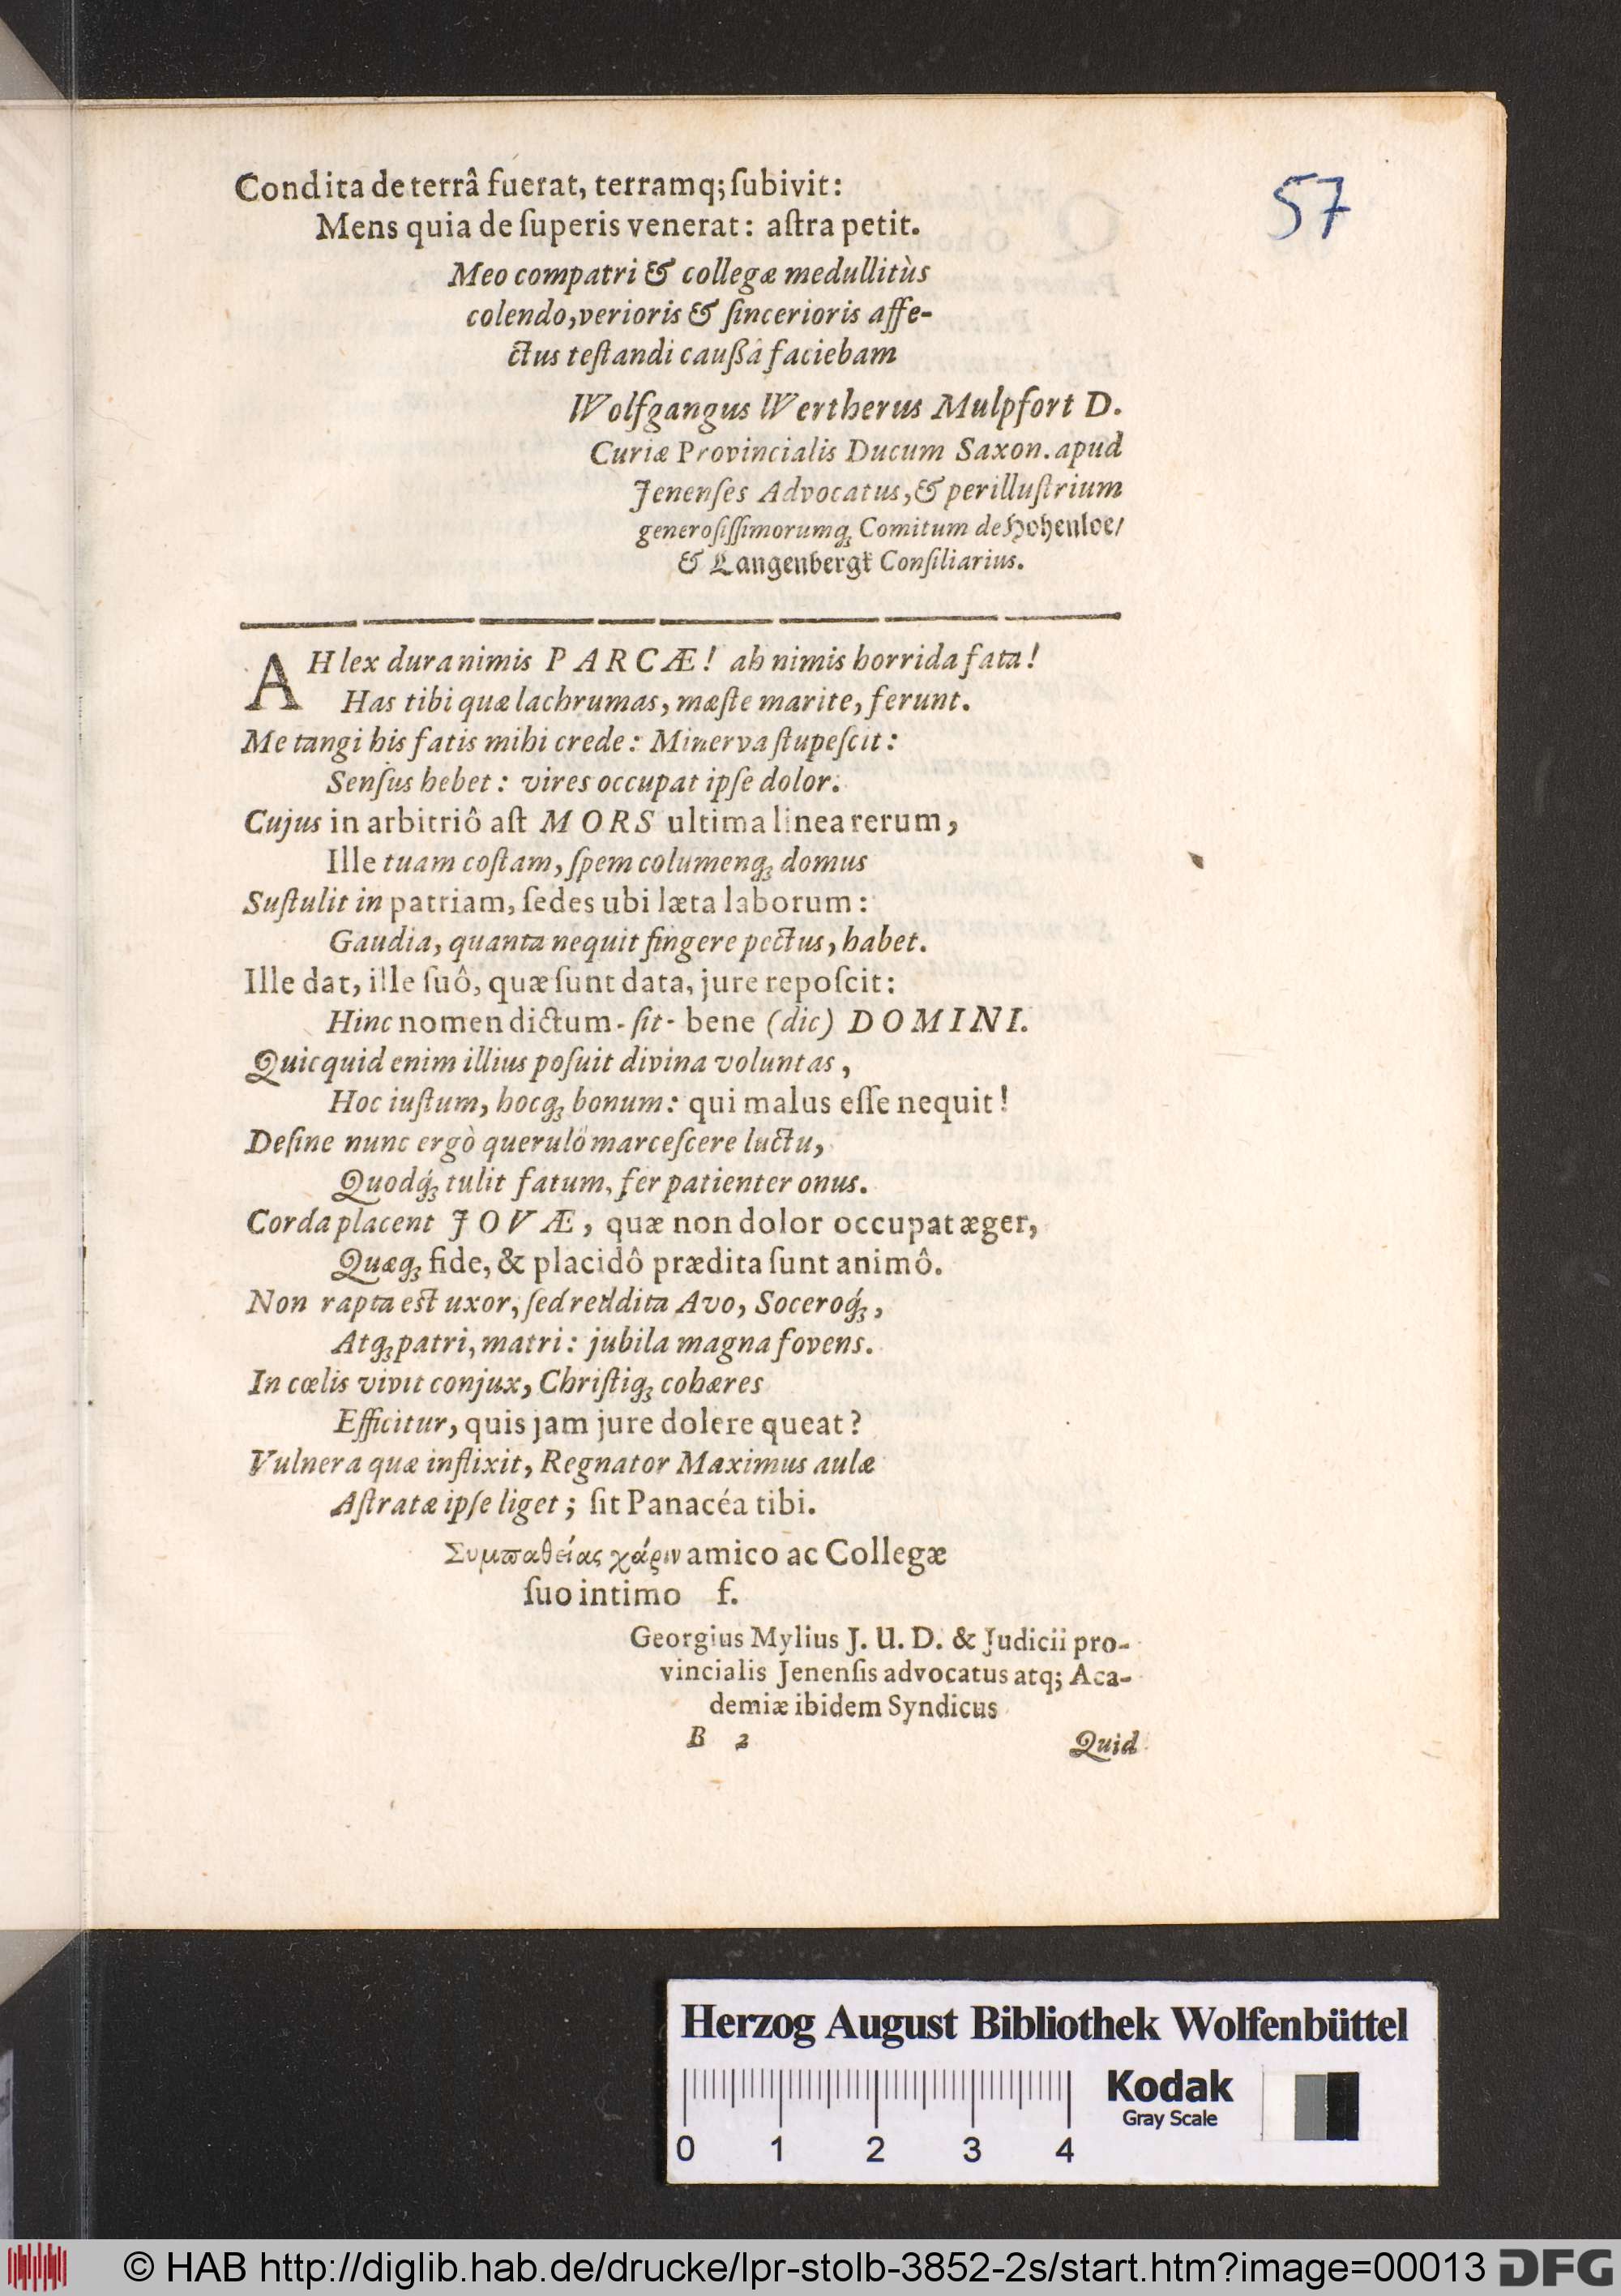 57
Condita de terrâ fuerat, terramq; ſubivit:
Mens quia de ſuperis venerat: aſtra petit.
Meo compatri & collegæ medullitùs
colendo, verioris & ſincerioris affe-
ctus teſtandi caußâ faciebam
Wolfgangus Wertherus Mulpfort D.
Curiæ Provincialis Ducum Saxon. apud
Jenenſes Advocatus, & perilluſtrium
generoſiſſimorumq; Comitum de Hohenloe/
& Langenbergk Conſiliarius.
AH lex dura nimis PARCÆ! ah nimis horrida fata!
Has tibi quæ lachrumas, mæſte marite, ferunt.
Me tangi his fatis mihi crede: Minerva ſtupeſcit:
Senſus hebet: vires occupat ipſe dolor.
Cujus in arbitriô aſt MORS ultima linea rerum,
Ille tuam coſtam, ſpem columenq; domus
Suſtulit in patriam, ſedes ubi læta laborum:
Gaudia, quanta nequit fingere pectus, habet.
Ille dat, ille ſuô, quæ ſunt data, jure repoſcit:
Hinc nomen dictum - ſit - bene (dic) DOMINI.
Quicquid enim illius poſuit divina voluntas,
Hoc iuſtum, hocq; bonum: qui malus eſſe nequit!
Deſine nunc ergò querulô marceſcere luctu,
Quodq́; tulit fatum, fer patienter onus.
Corda placent JOVÆ, quæ non dolor occupat æger,
Quæq; fide, & placidô prædita ſunt animô.
Non rapta est uxor, ſed reddita Avo, Soceroq́;,
Atq; patri, matri: jubila magna fovens.
In cœlis vivit conjux, Chriſtiq; cohæres
Efficitur, quis jam jure dolere queat?
Vulnera quæ inflixit, Regnator Maximus aulæ
Aſtratæ ipſe liget; ſit Panacéa tibi.
Συμπαθείας χάριν amico ac Collegæ
ſuo intimo f.
Georgius Mylius J. U. D. & Judicii pro-
vincialis Jenenſis advocatus atq; Aca-
demiæ ibidem Syndicus
B 2
Quid
Herzog August Bibliothek Wolfenbüttel
Kodak
Gray Scale
0 1 2 3 4
© HAB http://diglib.hab.de/drucke/lpr-stolb-3852-2s/start.htm?image=00013 DFG